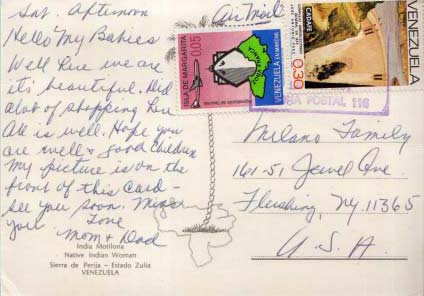 Sat. Afternoon
Air Mail
Hello My Babies -
Well here we are
its beautiful. Did
alot of shopping here
All is well. Hope you
are well & good children
My picture is on the
front of this card -
see you soon. Miss
you. Love
Mom & Dad
India Motilona
Native Indian Woman
Sierra de Perija - Estado Zulia
VENEZUELA
ISLA DE MARGARITA
0.05
VENEZUELA EN MARCHA
CADAFE
0.30
VENEZUELA
POSTAL 116
Milano Family
161-51 Jewel Ave.
Flushing, Ny. 11365
U.S.A.